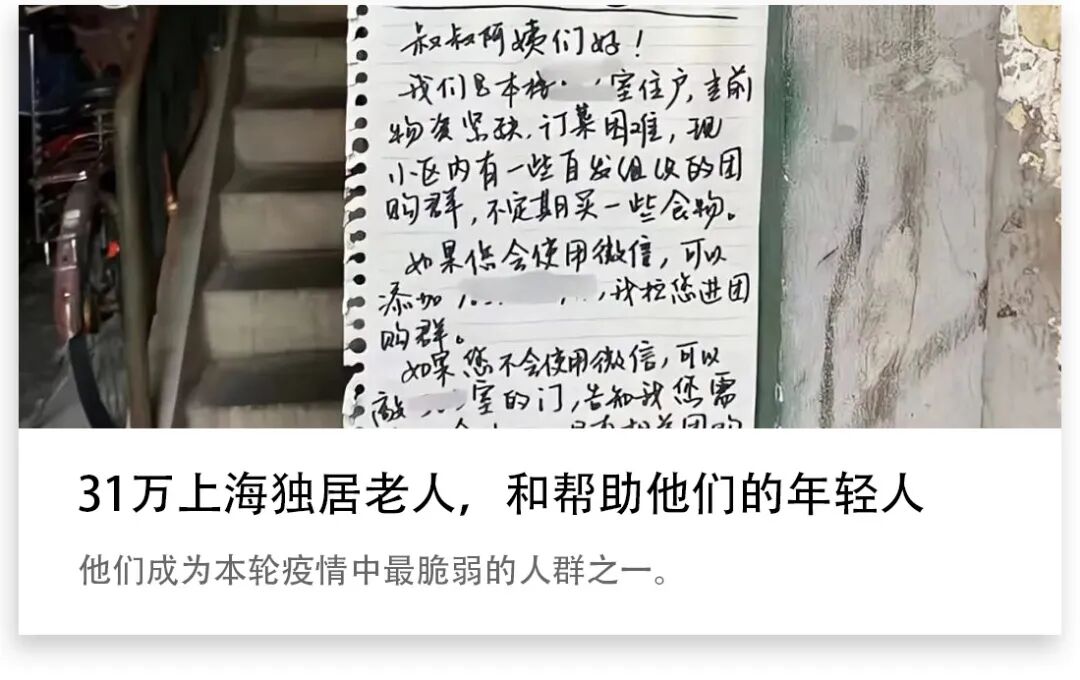 叔叔阿姨们好！
我们是本楼 室住户，当前
物资紧缺，订菜困难，现
小区内有一些自发组织的团
购群，不定期买一些食物。
如果您会使用微信，可以
添加 ，我拉您进团
购群。
如果您不会使用微信，可以
敲 室的门，告知我您需
31万上海独居老人，和帮助他们的年轻人
他们成为本轮疫情中最脆弱的人群之一。